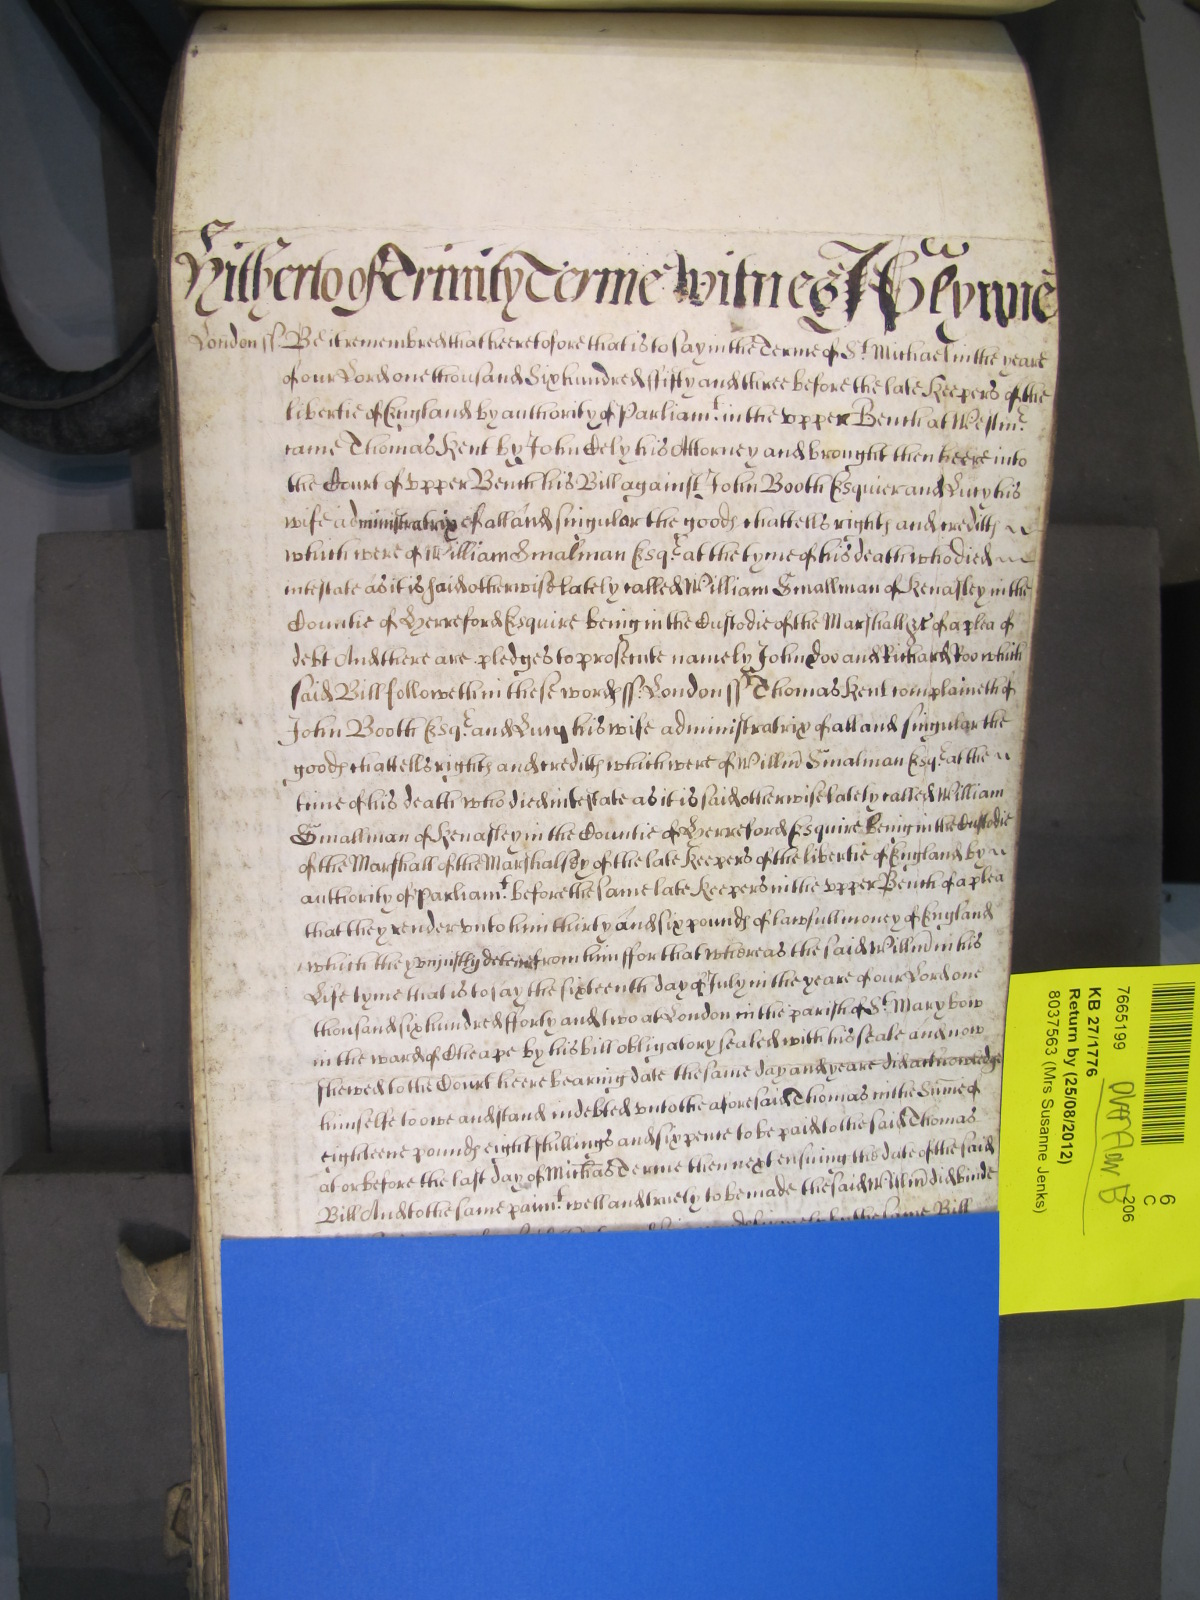 Hitherto of Trinity Terme witnes J Glynne
London ss. Be it remembred that heeretofore that is to say in the Terme of St. Michael in the yeare
of our Lord one thousand Six hundred ffifty and three before the late Keepers of the
libertie of England by authority of Parliamt. in the vpper Bench at Westmr.
came Thomas Kent by John Cely his Attorney and brought then heere into
the Court of vpper Bench his Bill against John Booth Esquier and Lucy his
wife administratrix of all and singular the goods chattells rights and creditts
which were of William Smalman Esqr. at the tyme of his death who died
intestate as it is said otherwise lately called William Smallman of Kenasley in the
Countie of Herreford Esquire being in the Custodie of the Marshall &c of a plea of
debt And there are pledges to prosecute namely John Doo and Richard Roo which
said Bill followeth in these words ss. London ss Thomas Kent complaineth of
John Booth Esqr. and Lucy his wife administratrix of all and singular the
goods chattells rights and creditts which were of Willm Smalman Esqr. at the
time of his death who died intestate as it is said otherwise lately called William
Smallman of Kenasley in the Countie of Herreford Esquire being in the Custodie
of the Marshall of the Marshallsey of the late Keepers of the libertie of England by
authority of Parliamt. before the same late Keepers in the vpper Bench of a plea
that they render vnto him thirty and six pounds of lawfull money of England
which they vniustly deteine from him ffor that whereas the said Willm in his
Life tyme that is to say the sixteenth day of July in the yeare of our Lord one
thousand six hundred fforty and two at London in the parish of St. Mary bow
in the ward of Cheape by his bill obligatory sealed with his seale and now
shewed to the Court heere bearing date the same day and yeare did acknowledge
himselfe to owe and stand indebted vnto the aforesaid Thomas in the Summe of
eighteene pounds eight shillings and six pence to be paid to the said Thomas
at or before the last day of Michas Terme then next ensuing the date of the said
Bill And to the same paimt. well and truely to be made the said Willm did binde
the same Bill
7665199
KB 27/1776
Return by (25/08/2012)
8037563 (Mrs Susanne Jenks)
6
C
206